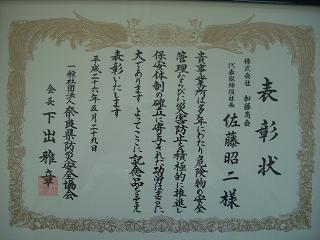 表彰状
株式会社 加藤商会
代表取締役社長
佐藤昭二様
貴事業所は多年にわたり危険物の安全
管理ならびに災害防止を積極的に推進し
保安体制の確立に寄与された功労はまことに
大であります よってここに記念品をそえ
表彰いたします
平成二十六年五月二十九日
一般社団法人奈良県防災安全協会
会長 下出雅章